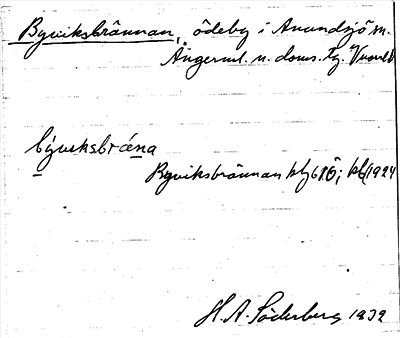 Byviksbrännan, ödeby i Anundsjö sn.
Ångerml. n. doms. tg. Vnorrl.
býviksbrána
Byviksbrännan kbl 68Ö; kbl 1924
H. A. Söderberg 1932